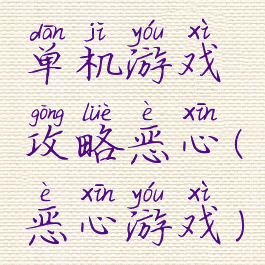 dān jī yóu xì
单机游戏
gōng lüè è xīn
攻略恶心(
è xīn yóu xì
恶心游戏)